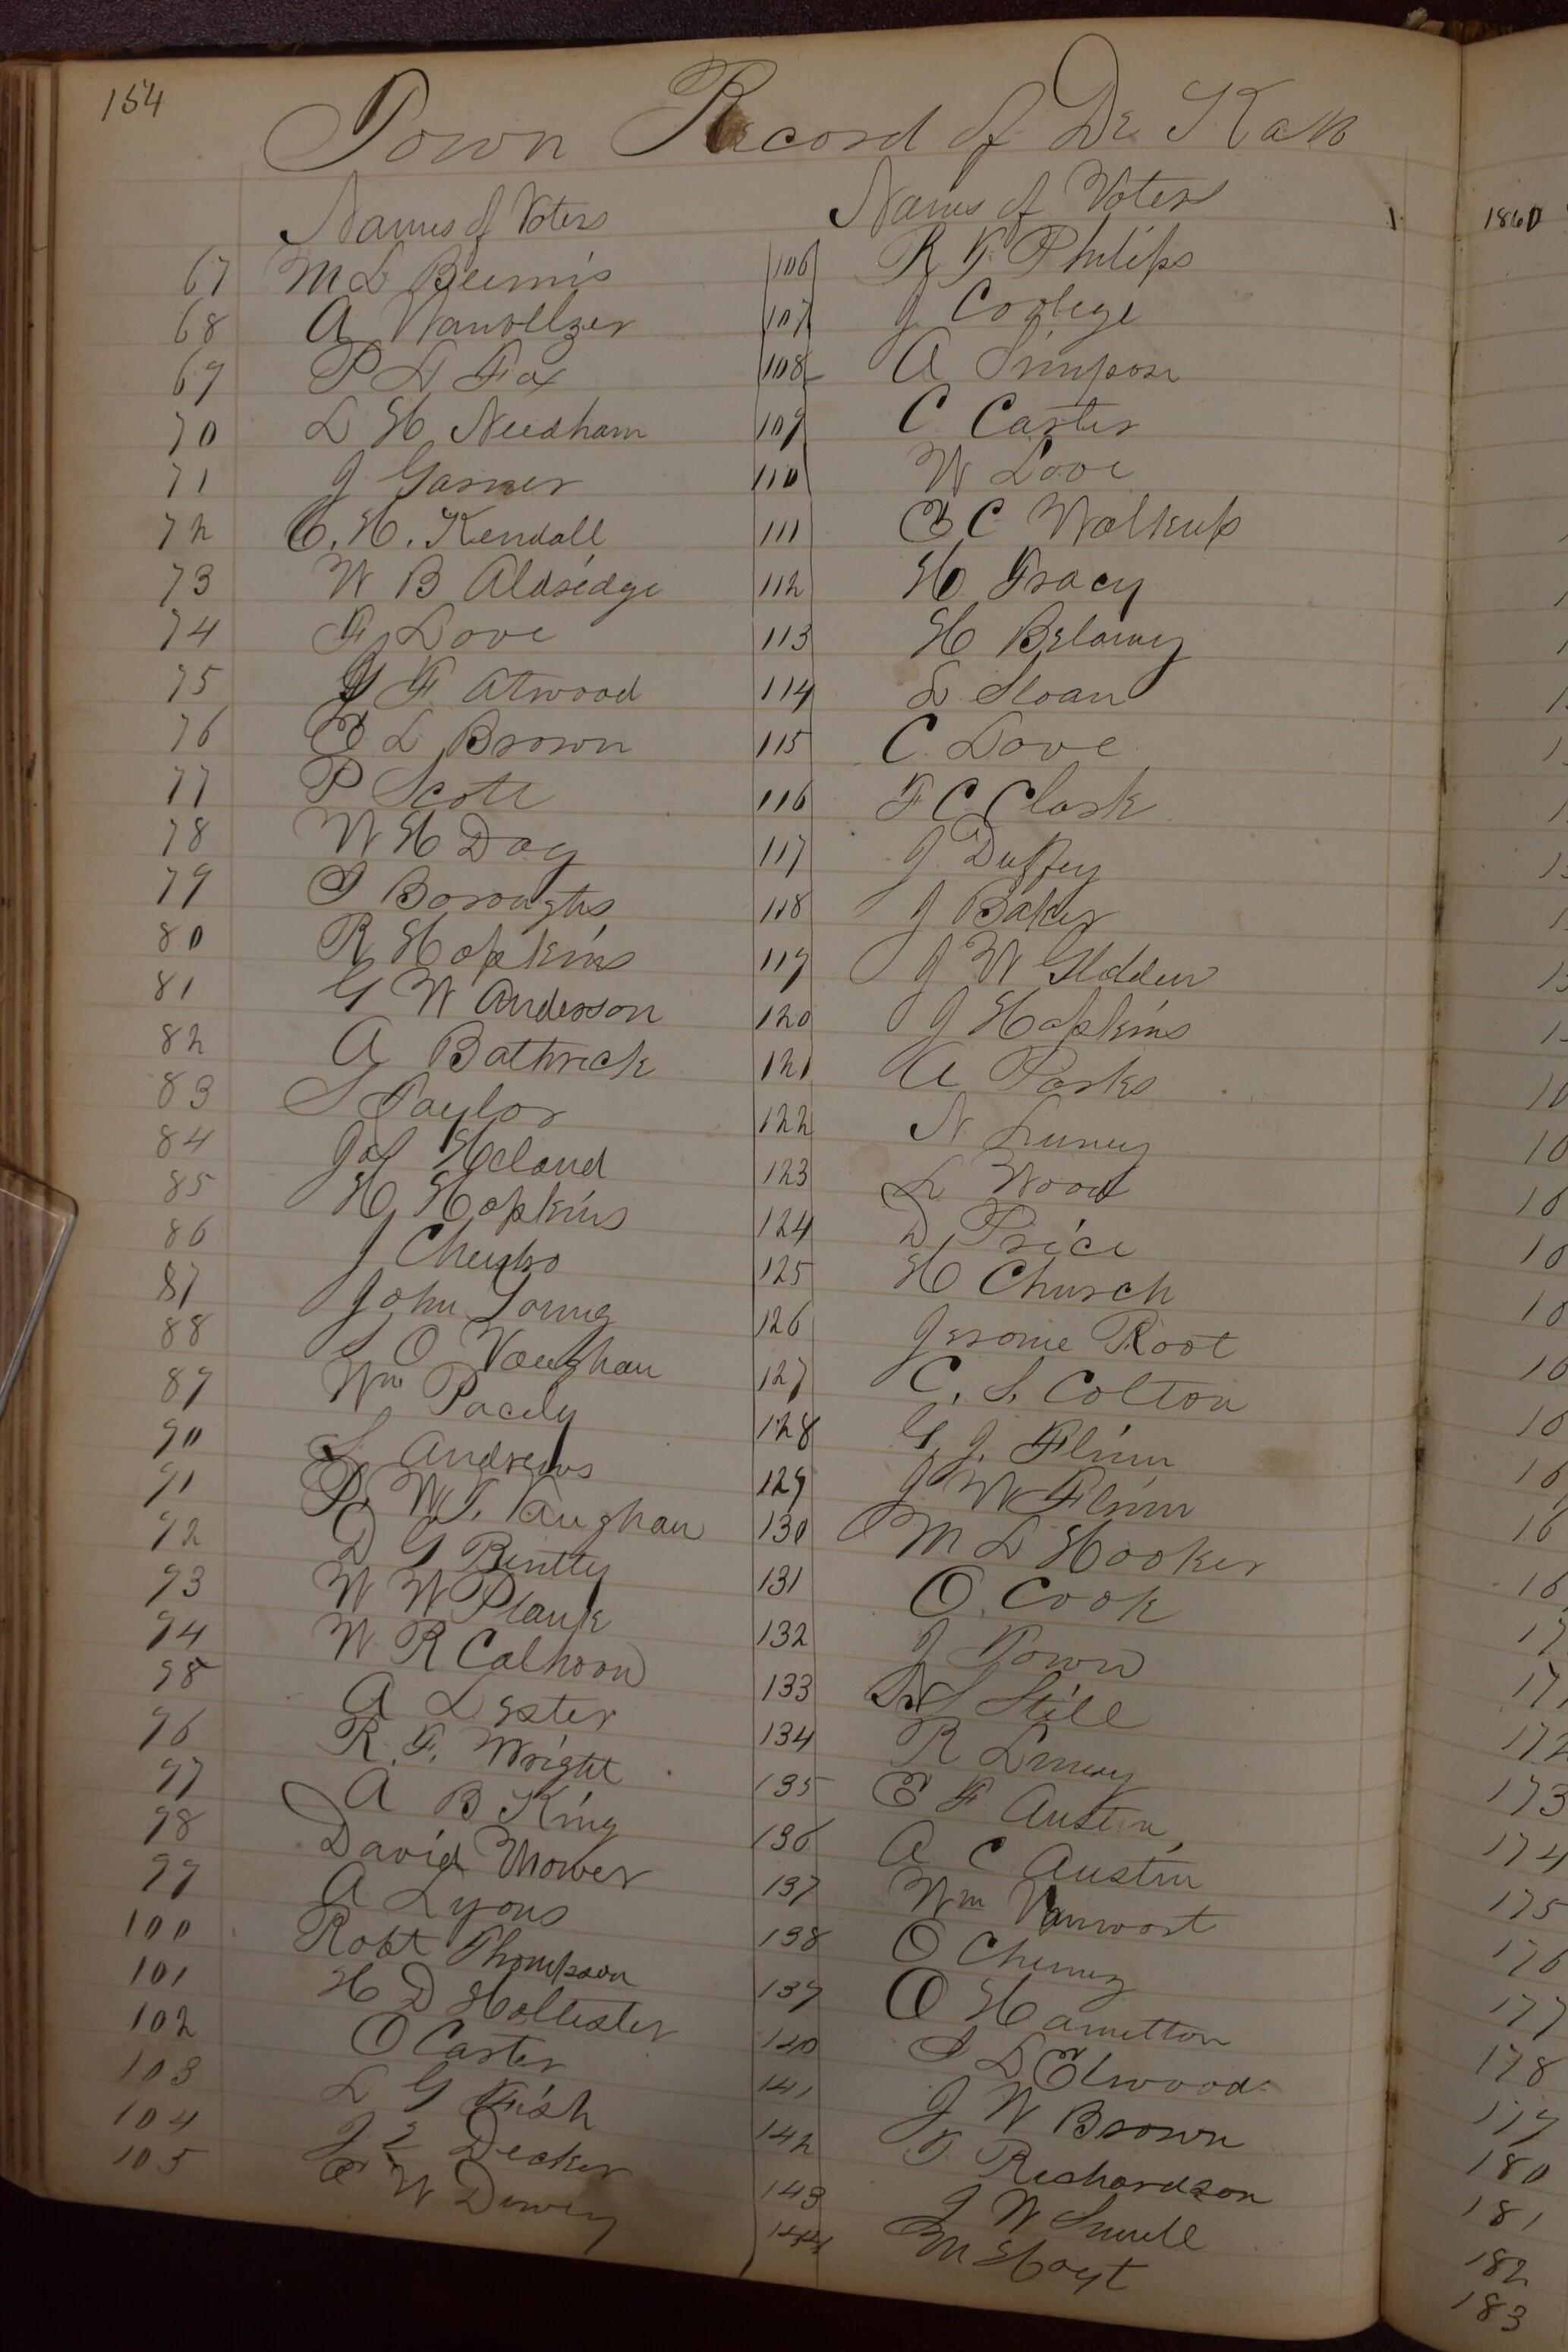 154
Town Record of De Kalb
Names of Voters
67 M L Beemis
68 A Vanvoltzer
69 P L Fox
70 L H Needham
71 J Garner
72 C. H. Kendall
73 W B Aldredge
74 F Love
75 J F Atwood
76 E L Brown
77 P Scott
78 W H Day
79 S Boroughs
80 R Hopkins
81 G W Anderson
82 A Bathrick
83 S Taylor
84 Jas Holand
85 H Hopkins
86 J
87 John Young
88 S O Vaughan
89 Wm Pacely
90 S Andrews
91 P. W. T. Vaughan
92 D G Bently
93 W W Plank
94 W R Calhoon
95 A Lester
96 R. F. Wright
97 A B King
98 David Mower
99 A Lyons
100 Robt Thompson
101 H D Hollister
102 O Carter
103 L G Fish
104 J L Decker
105 E W Dewey
Names of Voters
106 R F Philips
107 J Coolege
108 A Simpson
109 C Carter
110 W Love
111 E C Walkup
112 H Tracy
113 H Belamy
114 L Sloan
115 C Love
116 F C Clark
117 J Duffey
118 J Baker
119 J W Glidden
120 J Hopkins
121 A Parks
122 N Luney
123 L Wood
124 D Price
125 H Church
126 Jerome Root
127 C. S. Colton
128 G. J. Flinn
129 J W Flinn
130 M L Hooker
131 O. Cook
132 J Town
133 N S Still
134 R Linney
135 E F Austin
136 A C Austin
137 Wm Vanwort
138 O Cheney
139 O Hamilton
140 S L Elwood
141 J W Brown
142 T Richardson
143 J W Smull
144 M Hoyt
1860
172
173
174
175
176
177
178
179
180
181
182
183